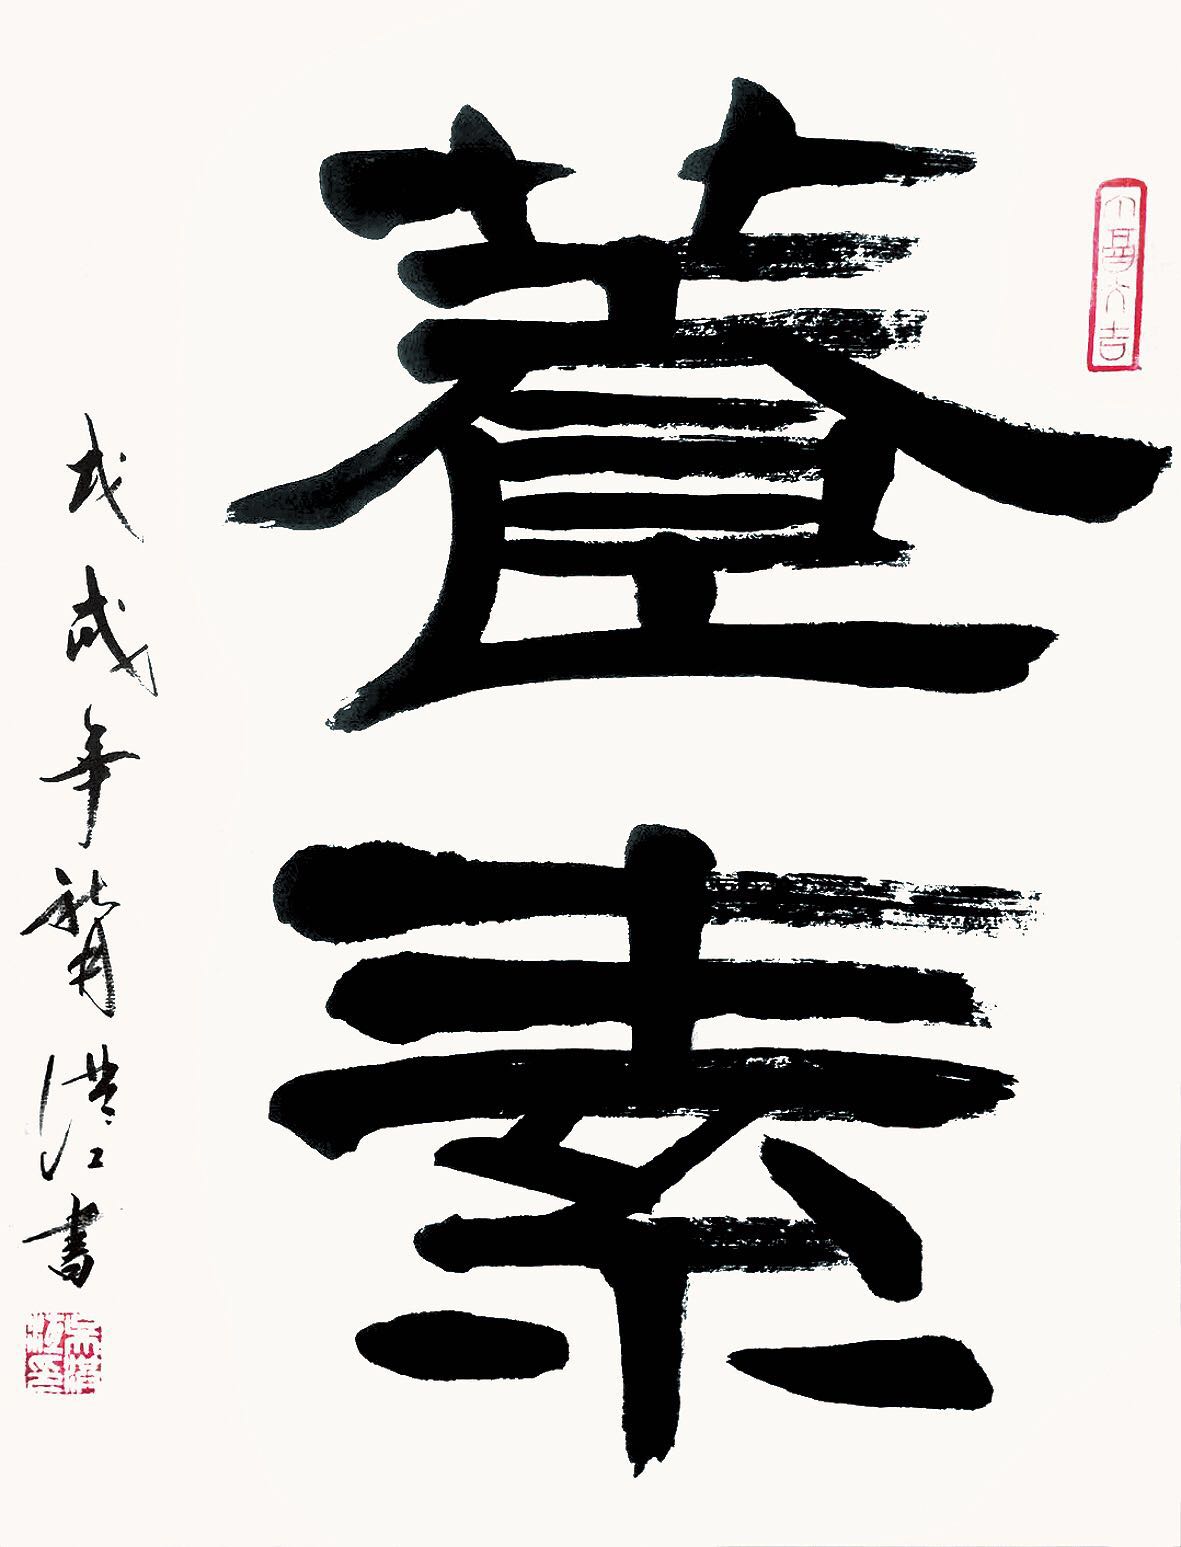 養素
戊戌年 洪江書